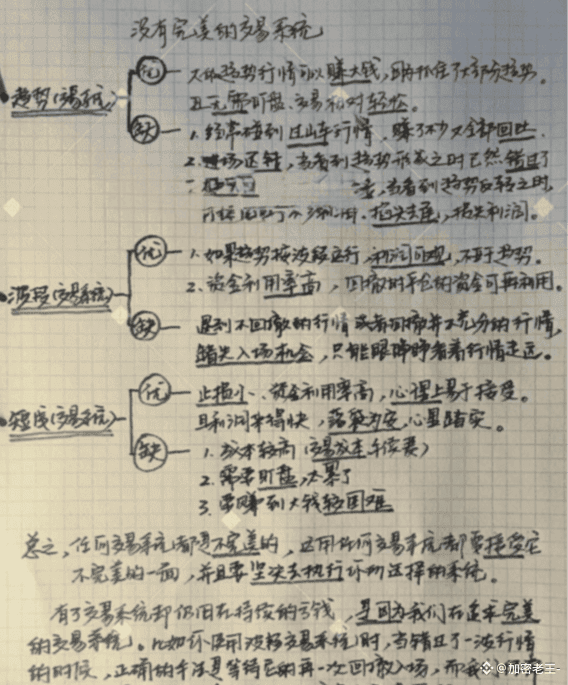 没有完美的交易系统
趋势(交易系统)
优
大级趋势行情可以赚大钱,因为抓住了大部分趋势。
且无需盯盘、交易相对轻松。
缺
1. 经常碰到过山车行情,赚了不少又全部回吐.
2. 进场迟钝,当看到趋势形成之时已然错过了
当看到趋势反转之时,
损失利润。
波段(交易系统)
优
1. 如果趋势按波段运行,利润可观,不亚于趋势。
2. 资金利用率高,回撤时平仓的资金可再利用。
缺
遇到不回撤的行情或者回撤并不充分的行情,
错失入场机会,只能眼睁睁看着行情走远。
短线(交易系统)
优
止损小、资金利用率高,心理上易于接受。
且利润来得快,落袋为安,心里踏实。
缺
1. 成本较高(交易成本手续费)
2. 需要盯盘,太累了
3. 要赚到大钱较困难
总之,任何交易系统都是不完美的,运用任何交易系统都要接受它
不完美的一面,并且要坚决去执行你所选择的系统。
有了交易系统却仍旧在持续的亏钱,是因为我们在追求完美
的交易系统。比如你使用波段交易系统时,当错过了一波行情
的时候,正确的手法是等待它的再一次回撤入场,而我
@加密老王-